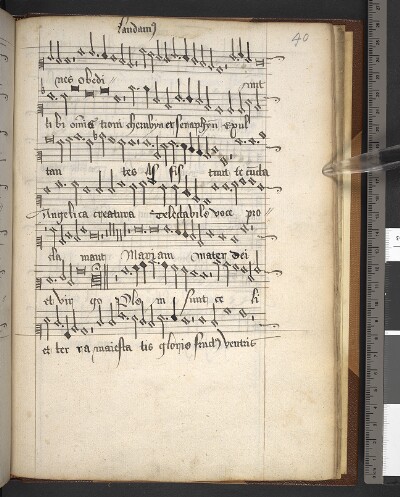 40
nes obedi unt
ti bi omnis tioni cherubyn et seraphyn exul
tan tes as sis tunt te cuncta
Angelica creatura Delectabile voce pro
cla mant Mariam mater dei
et vir go Ple ni sunt ce li
et ter ra maiesta tis glorie fruct ventris